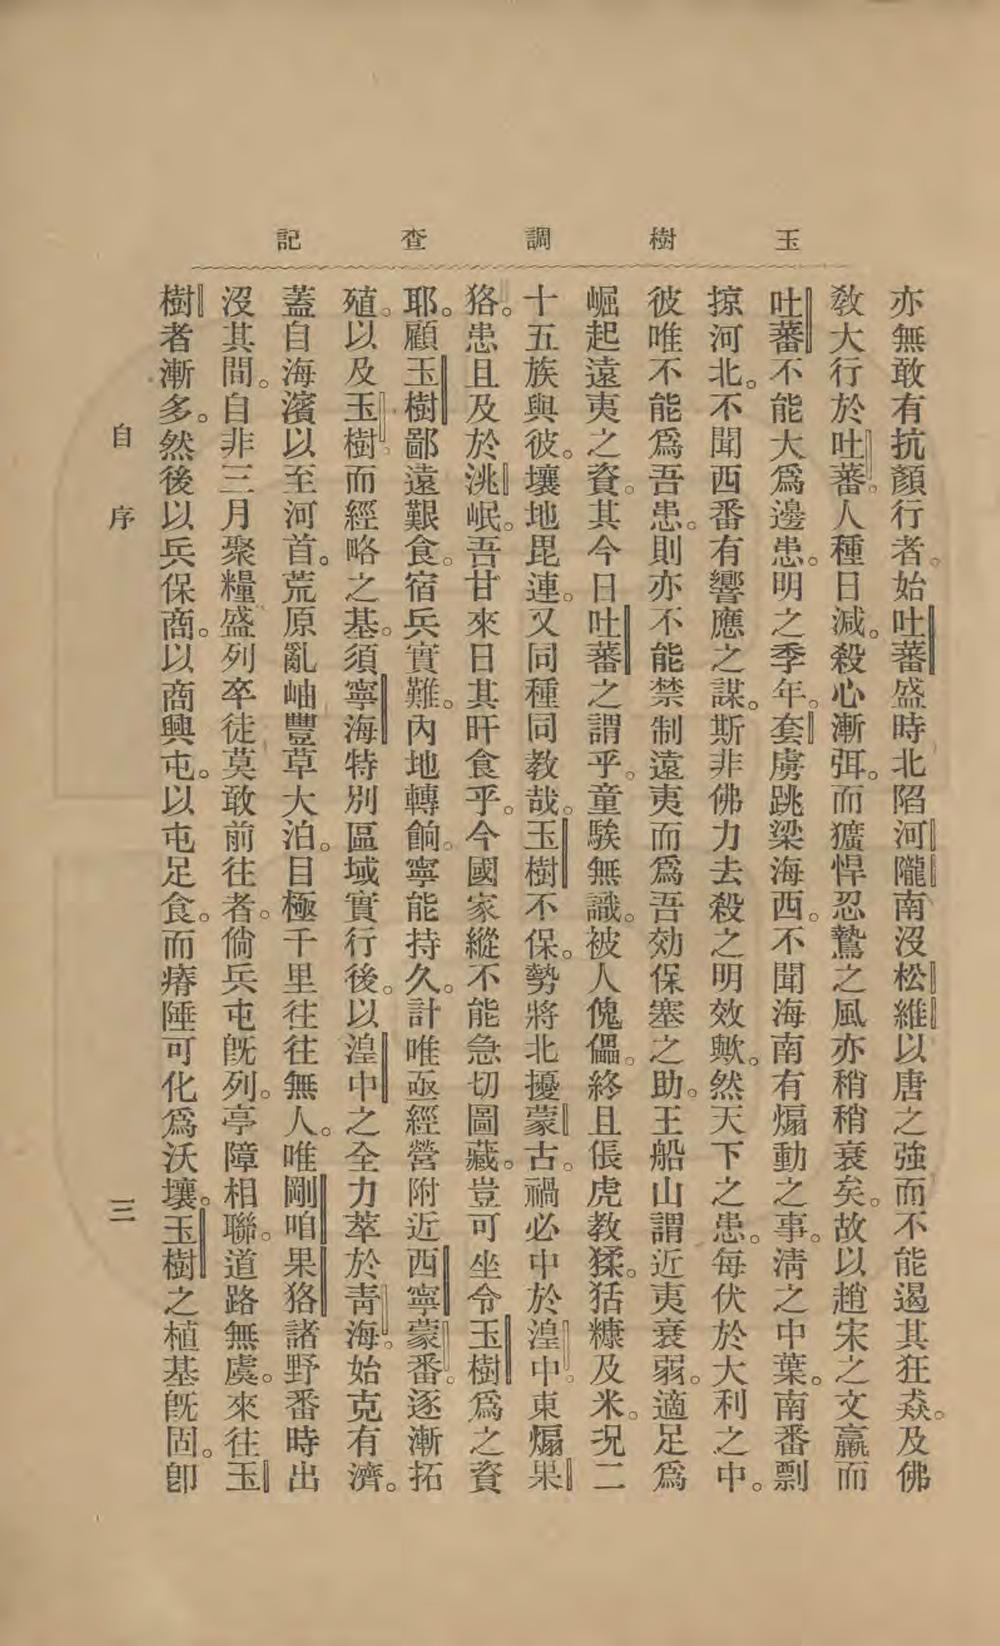 玉樹調查記
亦無敢有抗顏行者。始吐蕃盛時北陷河隴南沒松維以唐之強而不能遏其狂猋。及佛
敎大行於吐蕃。人種日減。殺心漸弭。而獷悍忍鷙之風亦稍稍衰矣。故以趙宋之文羸而
吐蕃不能大爲邊患。明之季年。套虜跳梁海西。不聞海南有煽動之事。淸之中葉。南番剽
掠河北。不聞西番有響應之謀。斯非佛力去殺之明效歟。然天下之患。每伏於大利之中。
彼唯不能爲吾患。則亦不能禁制遠夷而爲吾効保塞之助。王船山謂近夷衰弱。適足爲
崛起遠夷之資。其今日吐蕃之謂乎。童騃無識。被人傀儡。終且倀虎教猱。狧糠及米。況二
十五族與彼。壤地毘連。又同種同教哉。玉樹不保。勢將北擾蒙古。禍必中於湟中。東煽果
狢。患且及於洮岷。吾甘來日其旰食乎。今國家縱不能急切圖藏。豈可坐令玉樹爲之資
耶。顧玉樹鄙遠艱食。宿兵實難。內地轉餉。寧能持久。計唯亟經營附近西寧蒙番。逐漸拓
殖。以及玉樹而經略之基。須寧海特別區域實行後。以湟中之全力萃於靑海。始克有濟。
蓋自海濱以至河首。荒原亂岫豐草大泊。目極千里往往無人。唯剛咱果狢諸野番時出
沒其間。自非三月聚糧盛列卒徒莫敢前往者。倘兵屯旣列。亭障相聯。道路無虞。來往玉
樹者漸多。然後以兵保商。以商興屯。以屯足食。而瘠陲可化爲沃壤。玉樹之植基旣固。卽
自序
三